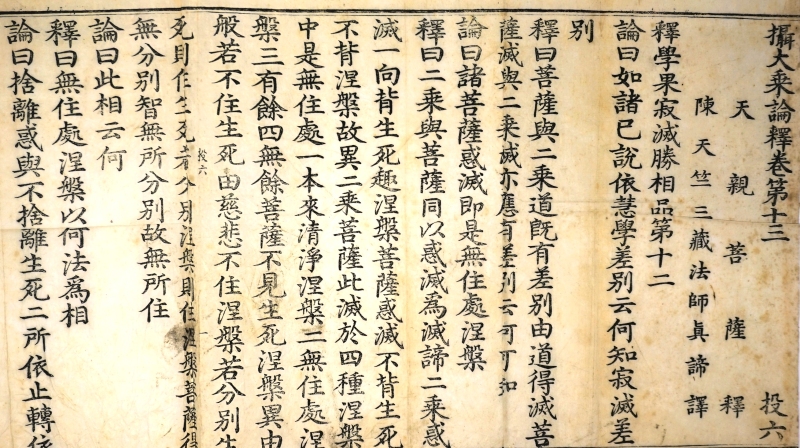 攝大乘論釋卷第十三 投六
天親菩薩釋
陳天竺三藏法師眞諦譯
釋學果寂滅勝相品第十二
論曰如諸已說依慧學差別云何知寂滅差
別
釋曰菩薩與二乘道旣有差別由道得滅菩
薩滅與二乘滅亦應有差別云何可知
論曰諸菩薩惑滅卽是無住處涅槃
釋曰二乘與菩薩同以惑滅爲滅諦二乘惑
滅一向背生死趣涅槃菩薩惑滅不背生死
不背涅槃故異二乘菩薩此滅於四種涅槃
中是無住處一本來淸淨涅槃二無住處涅
槃三有餘四無餘菩薩不見生死涅槃異由
般若不住生死由慈悲不住涅槃若分別生
投六
死則住生死若分別涅槃則住涅槃菩薩得
無分別智無所分別故無所住
論曰此相云何
釋曰無住處涅槃以何法爲相
論曰捨離惑與不捨離生死二所依止轉依